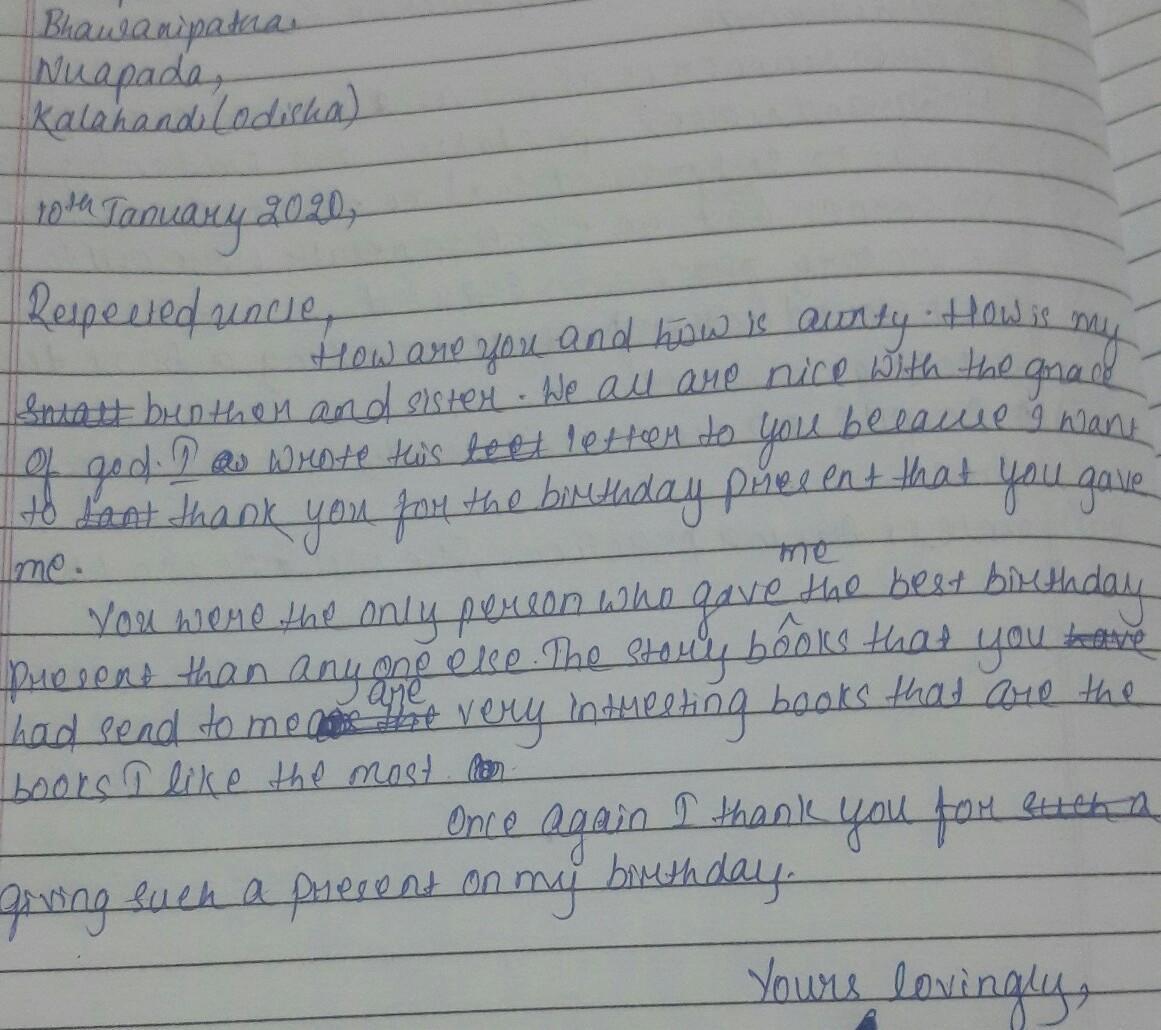 Bhawanipatna.
Nuapada,
Kalahandi (odisha)
10th January 2020,
Respected uncle,
How are you and how is aunty. How is my
small brother and sister. We all are nice with the grace
of god. I as wrote this leet letter to you because I want
to tant thank you for the birthday present that you gave
me.
me
You were the only person who gave the best birthday
present than any one else. The story books that you have
are
had send to me the very intresting books that are the
books I like the most.
Once again I thank you for such a
giving such a present on my birthday.
Yours lovingly,